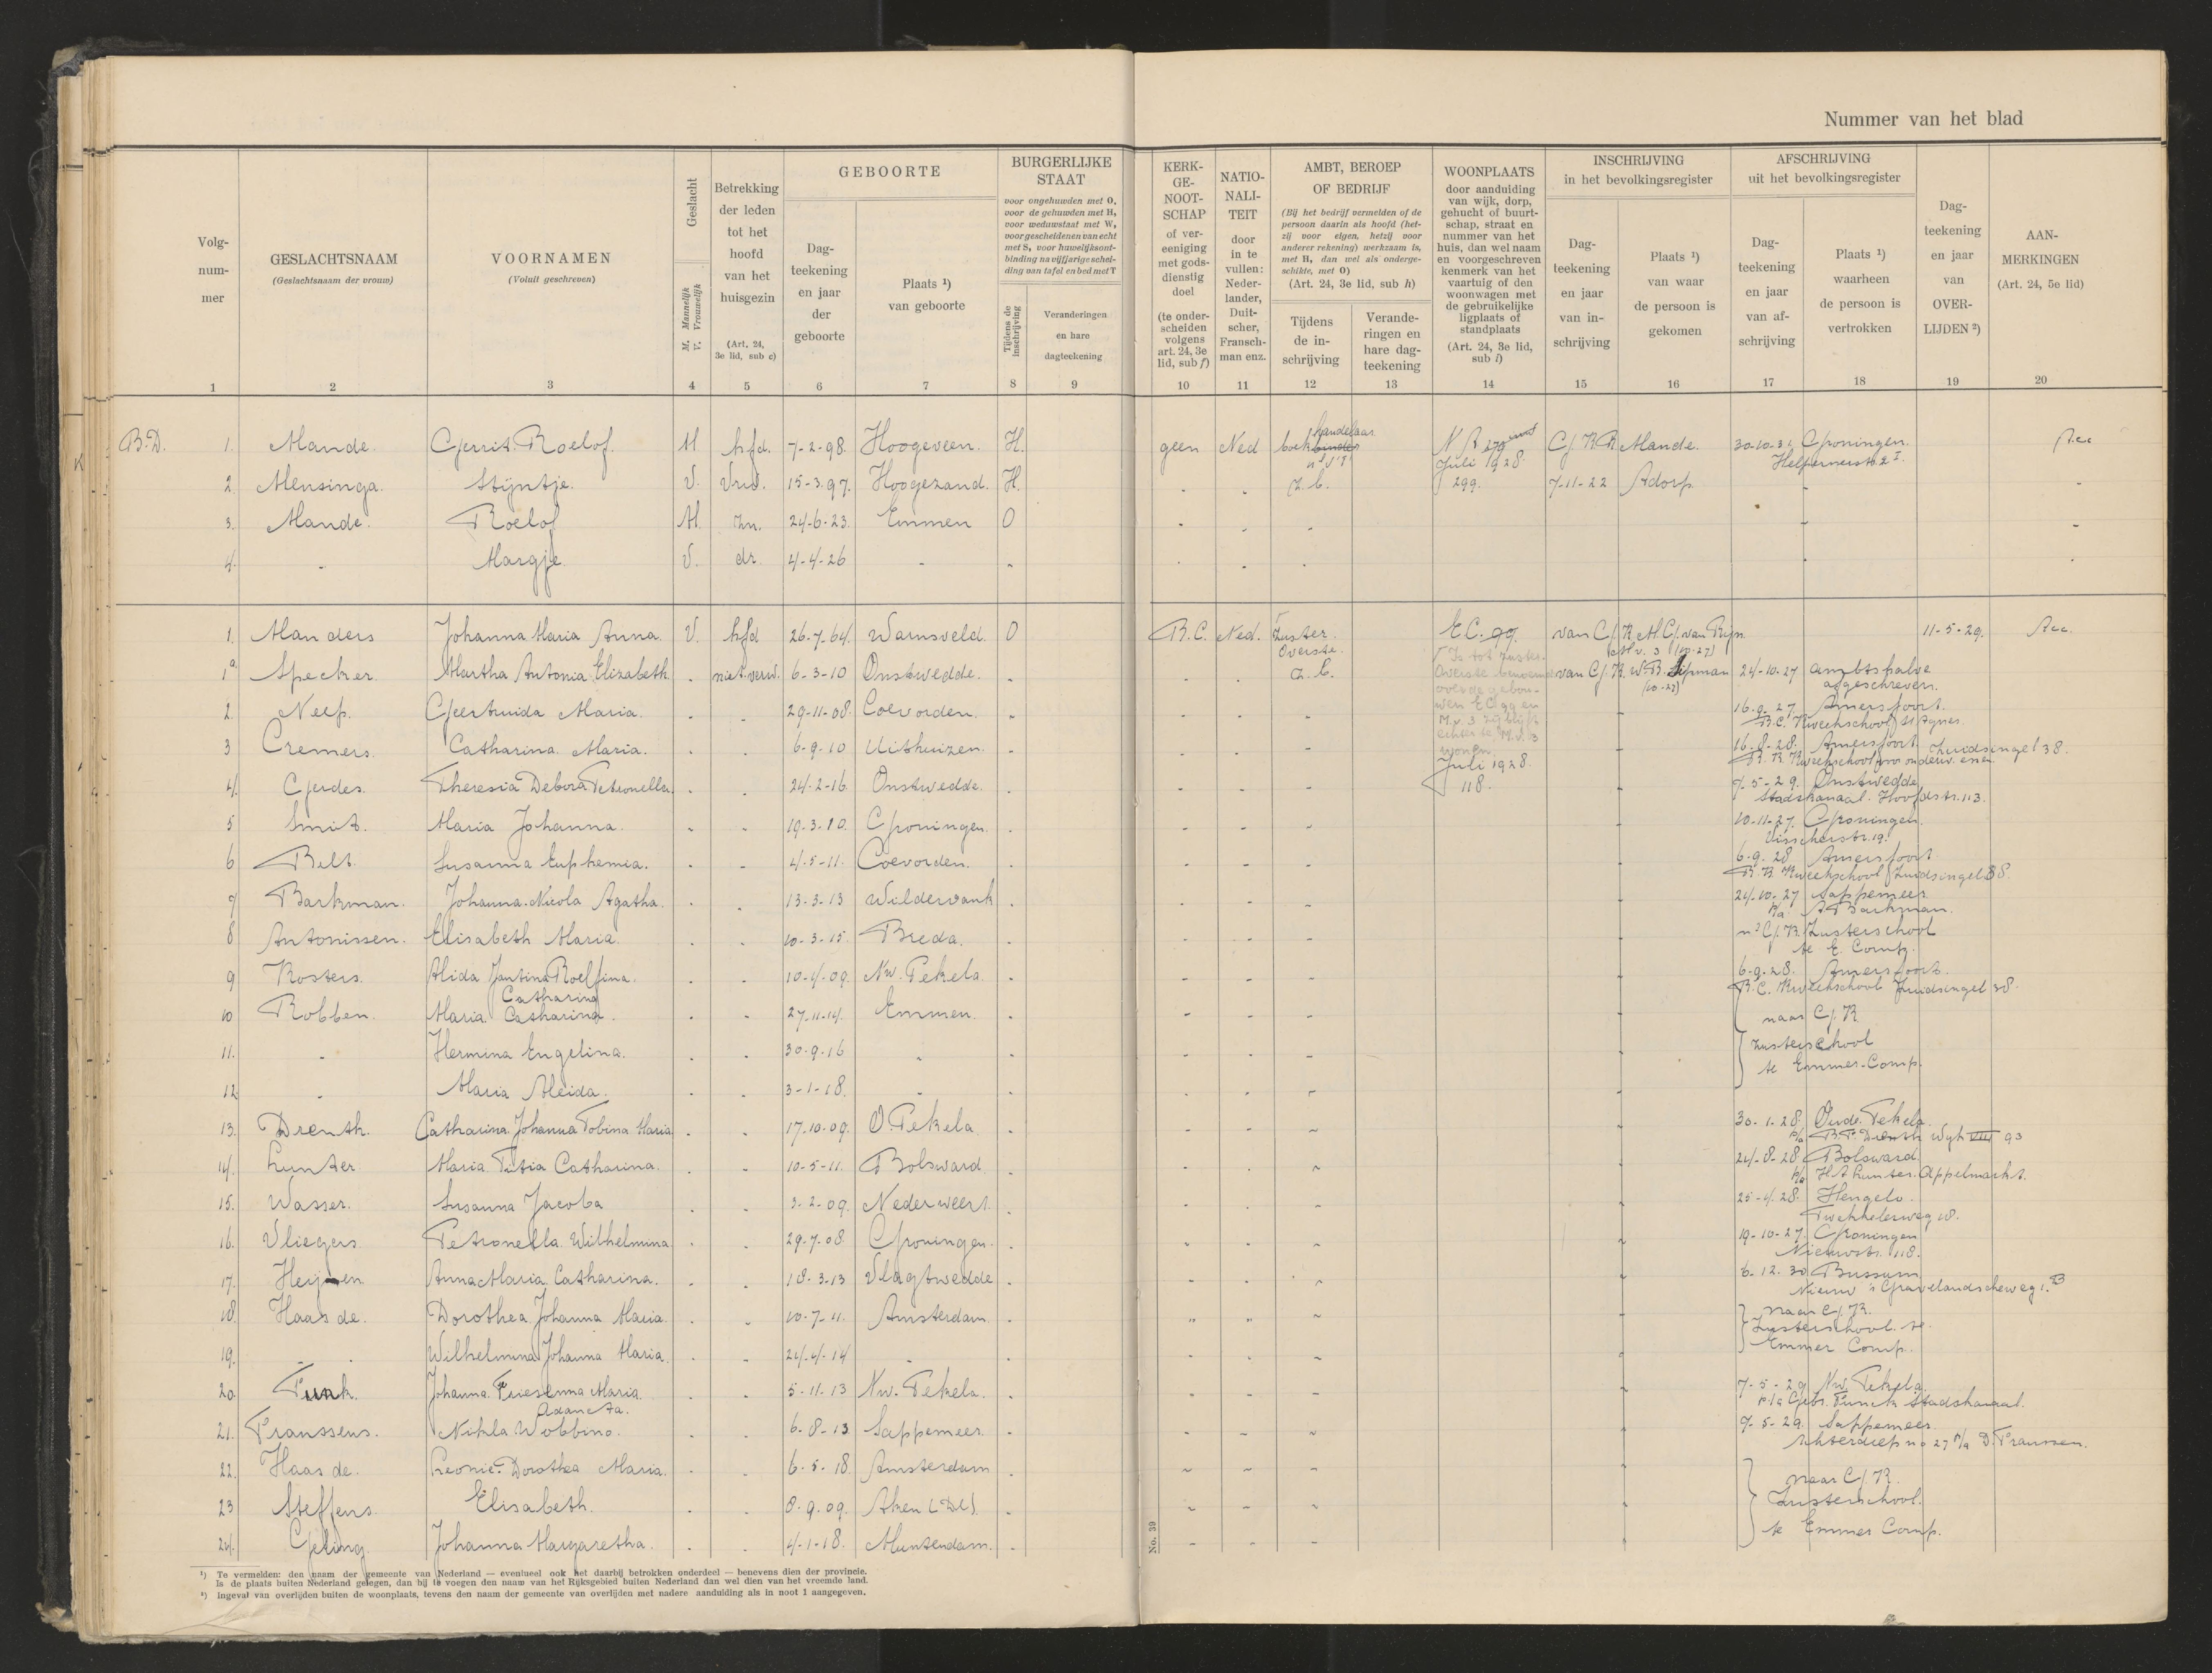 Nummer van het blad
Volg-
num-
mer
1
GESLACHTSNAAM
(Geslachtsnaam der vrouw)
2
VOORNAMEN
(Voluit geschreven)
3
Geslacht
M. Mannelijk
V. Vrouwelijk
4
Betrekking
der leden
tot het
hoofd
van het
huisgezin
(Art. 24,
3e lid, sub c)
5
GEBOORTE
Dag-
teekening
en jaar
der
geboorte
6
Plaats ¹)
van geboorte
7
BURGERLIJKE
STAAT
voor ongehuwden met O,
voor de gehuwden met H,
voor weduwstaat met W,
voor gescheidenen van echt
met S, voor huwelijksont-
binding na vijfjarige schei-
ding van tafel en bed met T
Tijdens de
inschrijving
8
Veranderingen
en hare
dagteekening
9
KERK-
GE-
NOOT-
SCHAP
of ver-
eeniging
met gods-
dienstig
doel
(te onder-
scheiden
volgens
art. 24, 3e
lid, sub f)
10
NATIO-
NALI-
TEIT
door
in te
vullen:
Neder-
lander,
Duit-
scher,
Fransch-
man enz.
11
AMBT, BEROEP
OF BEDRIJF
(Bij het bedrijf vermelden of de
persoon daarin als hoofd (het-
zij voor eigen, hetzij voor
anderer rekening) werkzaam is,
met H, dan wel als onderge-
schikte, met O)
(Art. 24, 3e lid, sub h)
Tijdens
de in-
schrijving
12
Verande-
ringen en
hare dag-
teekening
13
WOONPLAATS
door aanduiding
van wijk, dorp,
gehucht of buurt-
schap, straat en
nummer van het
huis, dan wel naam
en voorgeschreven
kenmerk van het
vaartuig of den
woonwagen met
de gebruikelijke
ligplaats of
standplaats
(Art. 24, 3e lid,
sub i)
14
INSCHRIJVING
in het bevolkingsregister
Dag-
teekening
en jaar
van in-
schrijving
15
Plaats ¹)
van waar
de persoon is
gekomen
16
AFSCHRIJVING
uit het bevolkingsregister
Dag-
teekening
en jaar
van af-
schrijving
17
Plaats ¹)
waarheen
de persoon is
vertrokken
18
Dag-
teekening
en jaar
van
OVER-
LIJDEN ²)
19
AAN-
MERKINGEN
(Art. 24, 5e lid)
20
B.D. 1. Mande. Gerrit Roelof. M hfd. 7-2-98. Hoogeveen. H. geen Ned boekbinder handelaar N.A. 279 Juli 1928. G.K.R Mande. 30-10-31 Groningen. Acc
Helpernerstr. 2 I.
2. Mensinga. Stijntje. V. Vrw. 15-3-97. Hoogezand. H. . . z.b. 299. 7-11-22 Adorp - -
3. Mande. Roelof M. zn. 24-6-23. Emmen O - - - - -
4. - Margje V. dr. 4-4-26 - - . . - .
1. Manders Johanna Maria Anna. V. hfd 26-7-64. Warnsveld. O R.C. Ned. Zuster Overste. E.C. 99. van G.R. M.G. van Rijn. 11-5-29. Acc.
M v. 3 (10-27)
1a Specker. Martha Antonia Elizabeth. . niet verw. 6-3-10 Onstwedde. . . . z.b. van G.R. W.B. Sipman 24-10-27 ambtshalve
(10-27) afgeschreven.
Is tot zuster-
Overste benoemd
over de gebou-
wen E C 99 en
M.v. 3 zij blijft
echter te M.v. 3
wonen.
Juli 1928.
118.
2. Neef. Geertruida Maria. . . 29-11-08. Coevorden. - 16-9-27. Amersfoort.
R.C. Kweekschool St Agnes.
3 Cremers. Catharina Maria. . . 6-9-10 Uithuizen. - 16-8-28. Amersfoort Zuidsingel 38.
R.K. Kweekschool voor onderw. essen
4. Gerdes. Theresia Debora Petronella. . . 24-2-16. Onstwedde. . 7-5-29. Onstwedde
Stadskanaal. Hoofdstr. 113.
5 Smit. Maria Johanna. - . 19-3-10. Groningen. . 10-11-27. Groningen.
Visscherstr. 19.
6 Bult. Susanna Euphemia. . - 4-5-11. Coevorden. . 6-9-28 Amersfoort
R K Kweekschool Zuidsingel 38.
7 Barkman. Johanna Nicola Agatha. . . 13-3-13 Wildervank . 24-10-27 Sappemeer
p/a A Barkman.
8 Antonissen. Elisabeth Maria. . . 10-3-15. Breda. . n. G.R. Zusterschool
te E. Comp.
9 Kosters. Alida Jantina Roelfina. . . 10-4-09. Nw. Pekela. . 6-9-28. Amersfoort.
Catharina R.C. Kweekschool Zuidsingel 38.
10 Robben. Maria Catharina. . . 27-11-14. Emmen. . naar G.R
11. - Hermina Engelina. . . 30-9-16 . . Zusterschool
te Emmer-Comp.
12. - Maria Aleida. . . 3-1-18. . .
13. Drenth. Catharina Johanna Tobina Maria . . 17-10-09. O. Pekela . 30-1-28. Oude Pekela
p/a B.P. Drenth Wyk VIII 93
14. Lunter. Maria Titia Catharina. . . 10-5-11. Bolsward. . 24-8-28 Bolsward
p/a H.A. Lunter. Appelmarkt.
15. Wasser. Susanna Jacoba . . 3-2-09. Nederweert. . 25-4-28. Hengelo.
Twekkelerweg 18.
16. Vliegers Petronella Wilhelmina. . . 29-7-08. Groningen. . 19-10-27. Groningen
Nieuwstr. 118.
17. Heijnen Anna Maria Catharina. . . 18-3-13 Vlagtwedde . 6-12-30 Bussum
Nieuw 's Gravelandscheweg 1.B
18. Haas de. Dorothea Johanna Maria. . . 10-7-11. Amsterdam. . naar G.R.
Zusterschool te
Emmer Comp.
19. - - Wilhelmina Johanna Maria. . . 24-4-14 - .
20. Funk. Johanna Friesenna Maria. . . 5-11-13 Nw. Pekela. . 7-5-29 Nw Pekela
p/a Gebr. Funck Stadskanaal.
Adancta.
21. Franssens. Nikla Wobbina. . . 6-8-13. Sappemeer. . 7-5-29. Sappemeer.
Achterdiep no 27 p/a D. Franssen.
22. Haas de. Leonie Dorothea Maria. . . 6-5-18. Amsterdam . naar G.R.
23 Steffens Elisabeth. . . 8-9-09. Aken (Dl). . Zusterschool.
24. Geling. Johanna Margaretha. . . 4-1-18. Muntendam. . te Emmer Comp.
No. 39
¹) Te vermelden: den naam der gemeente van Nederland — eventueel ook het daarbij betrokken onderdeel — benevens dien der provincie.
Is de plaats buiten Nederland gelegen, dan bij te voegen den naam van het Rijksgebied buiten Nederland dan wel dien van het vreemde land.
²) Ingeval van overlijden buiten de woonplaats, tevens den naam der gemeente van overlijden met nadere aanduiding als in noot 1 aangegeven.